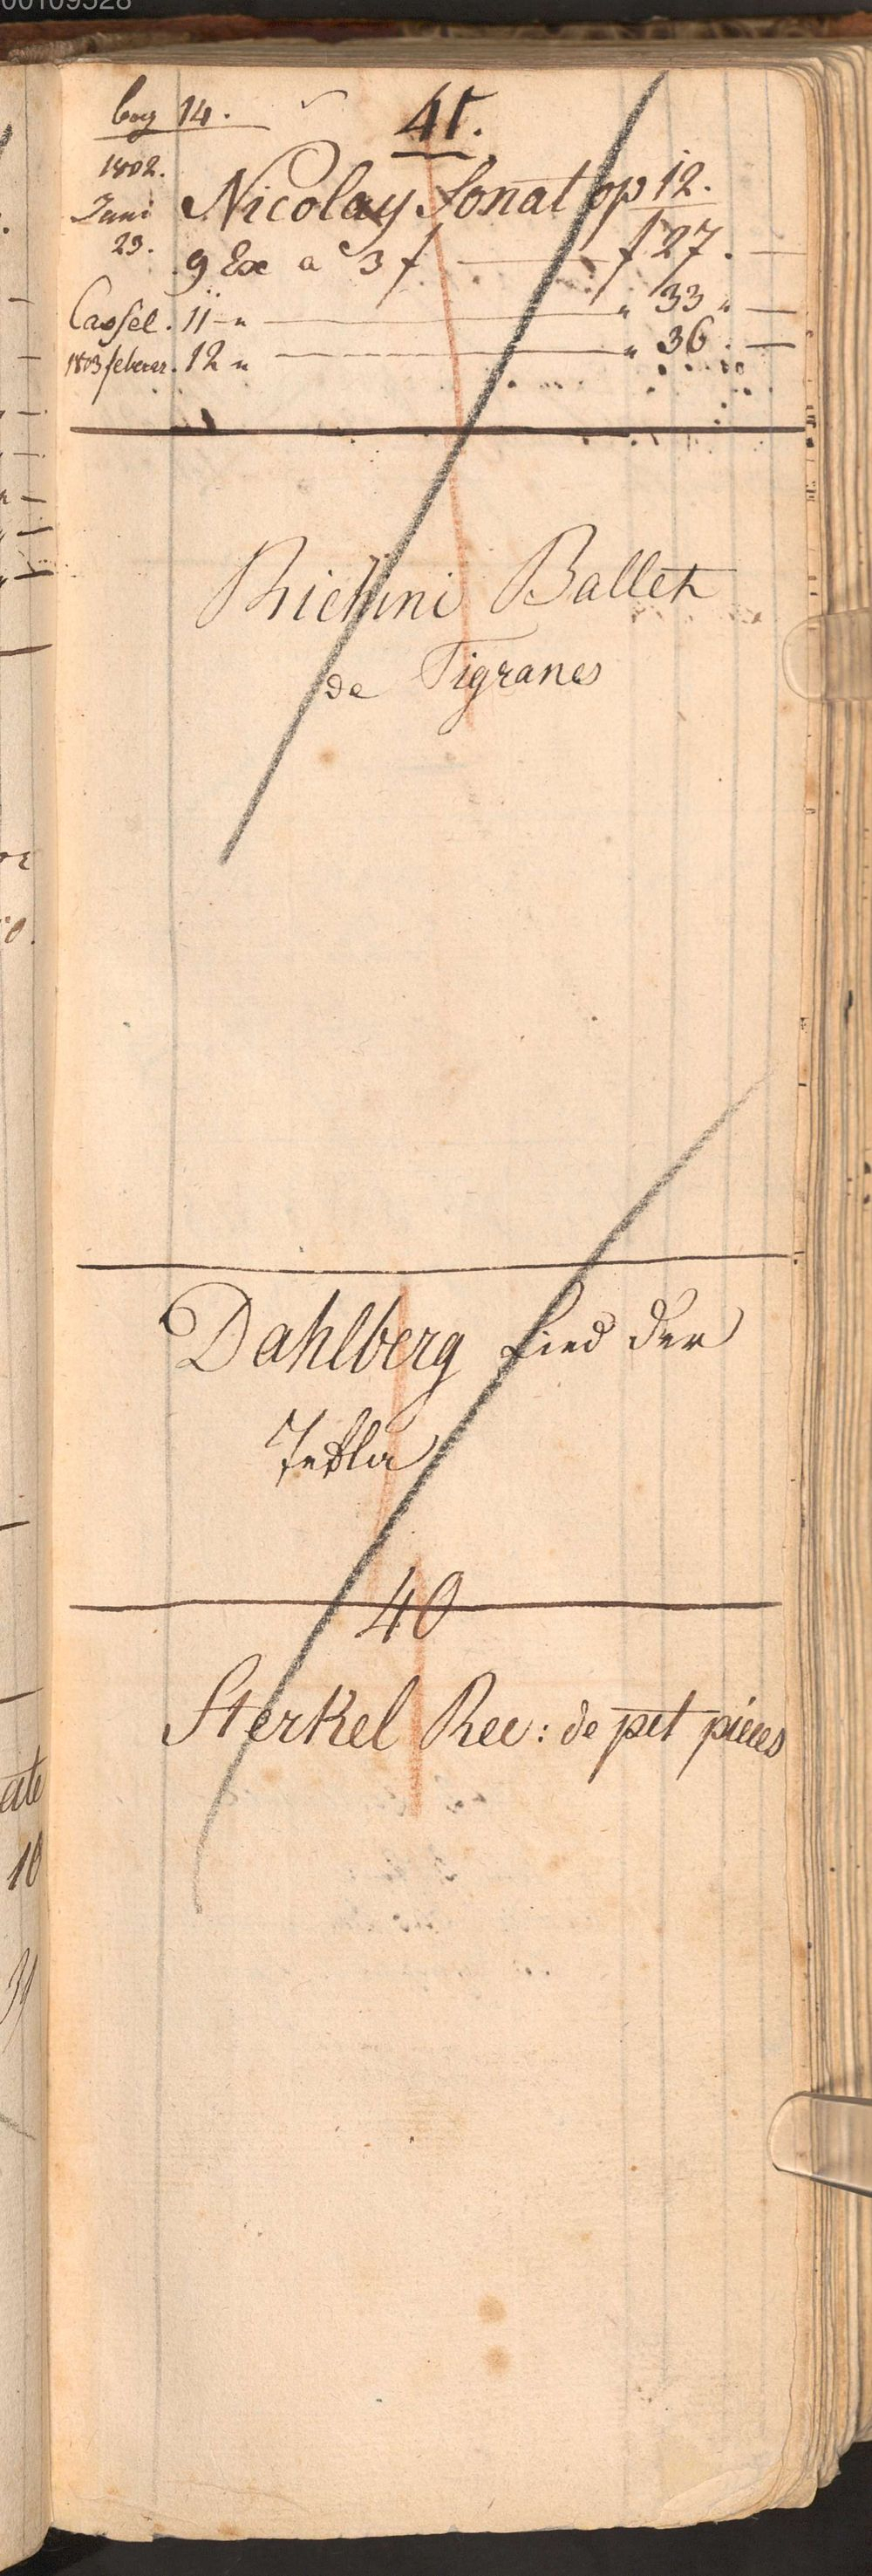 00109528
bog 14.
41.
1802.
Juni
23.
Nicolay Sonat op 12.
9 Ex a 3 f — f 27. —
Cassel. 11 — " — " 33 " —
1803 feberar. 12 " — " 36. —
Righini Ballet
de Tigranes
Dahlberg Lied der
Tekla
40
Sterkel Rec: de pet pieces
ate
10